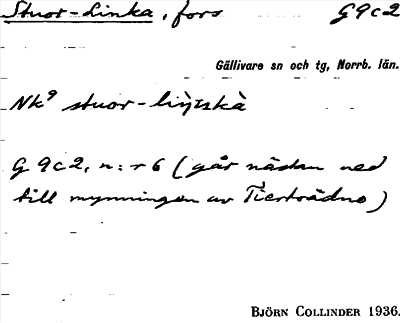 Stuor-Linka, fors G9c2
Gällivare sn och tg, Norrb. län.
Nk⁹ stuor-
G 9c2, n:r 6 (går nästan ned
till mynningen av Tiertvädno)
BJÖRN COLLINDER 1936.